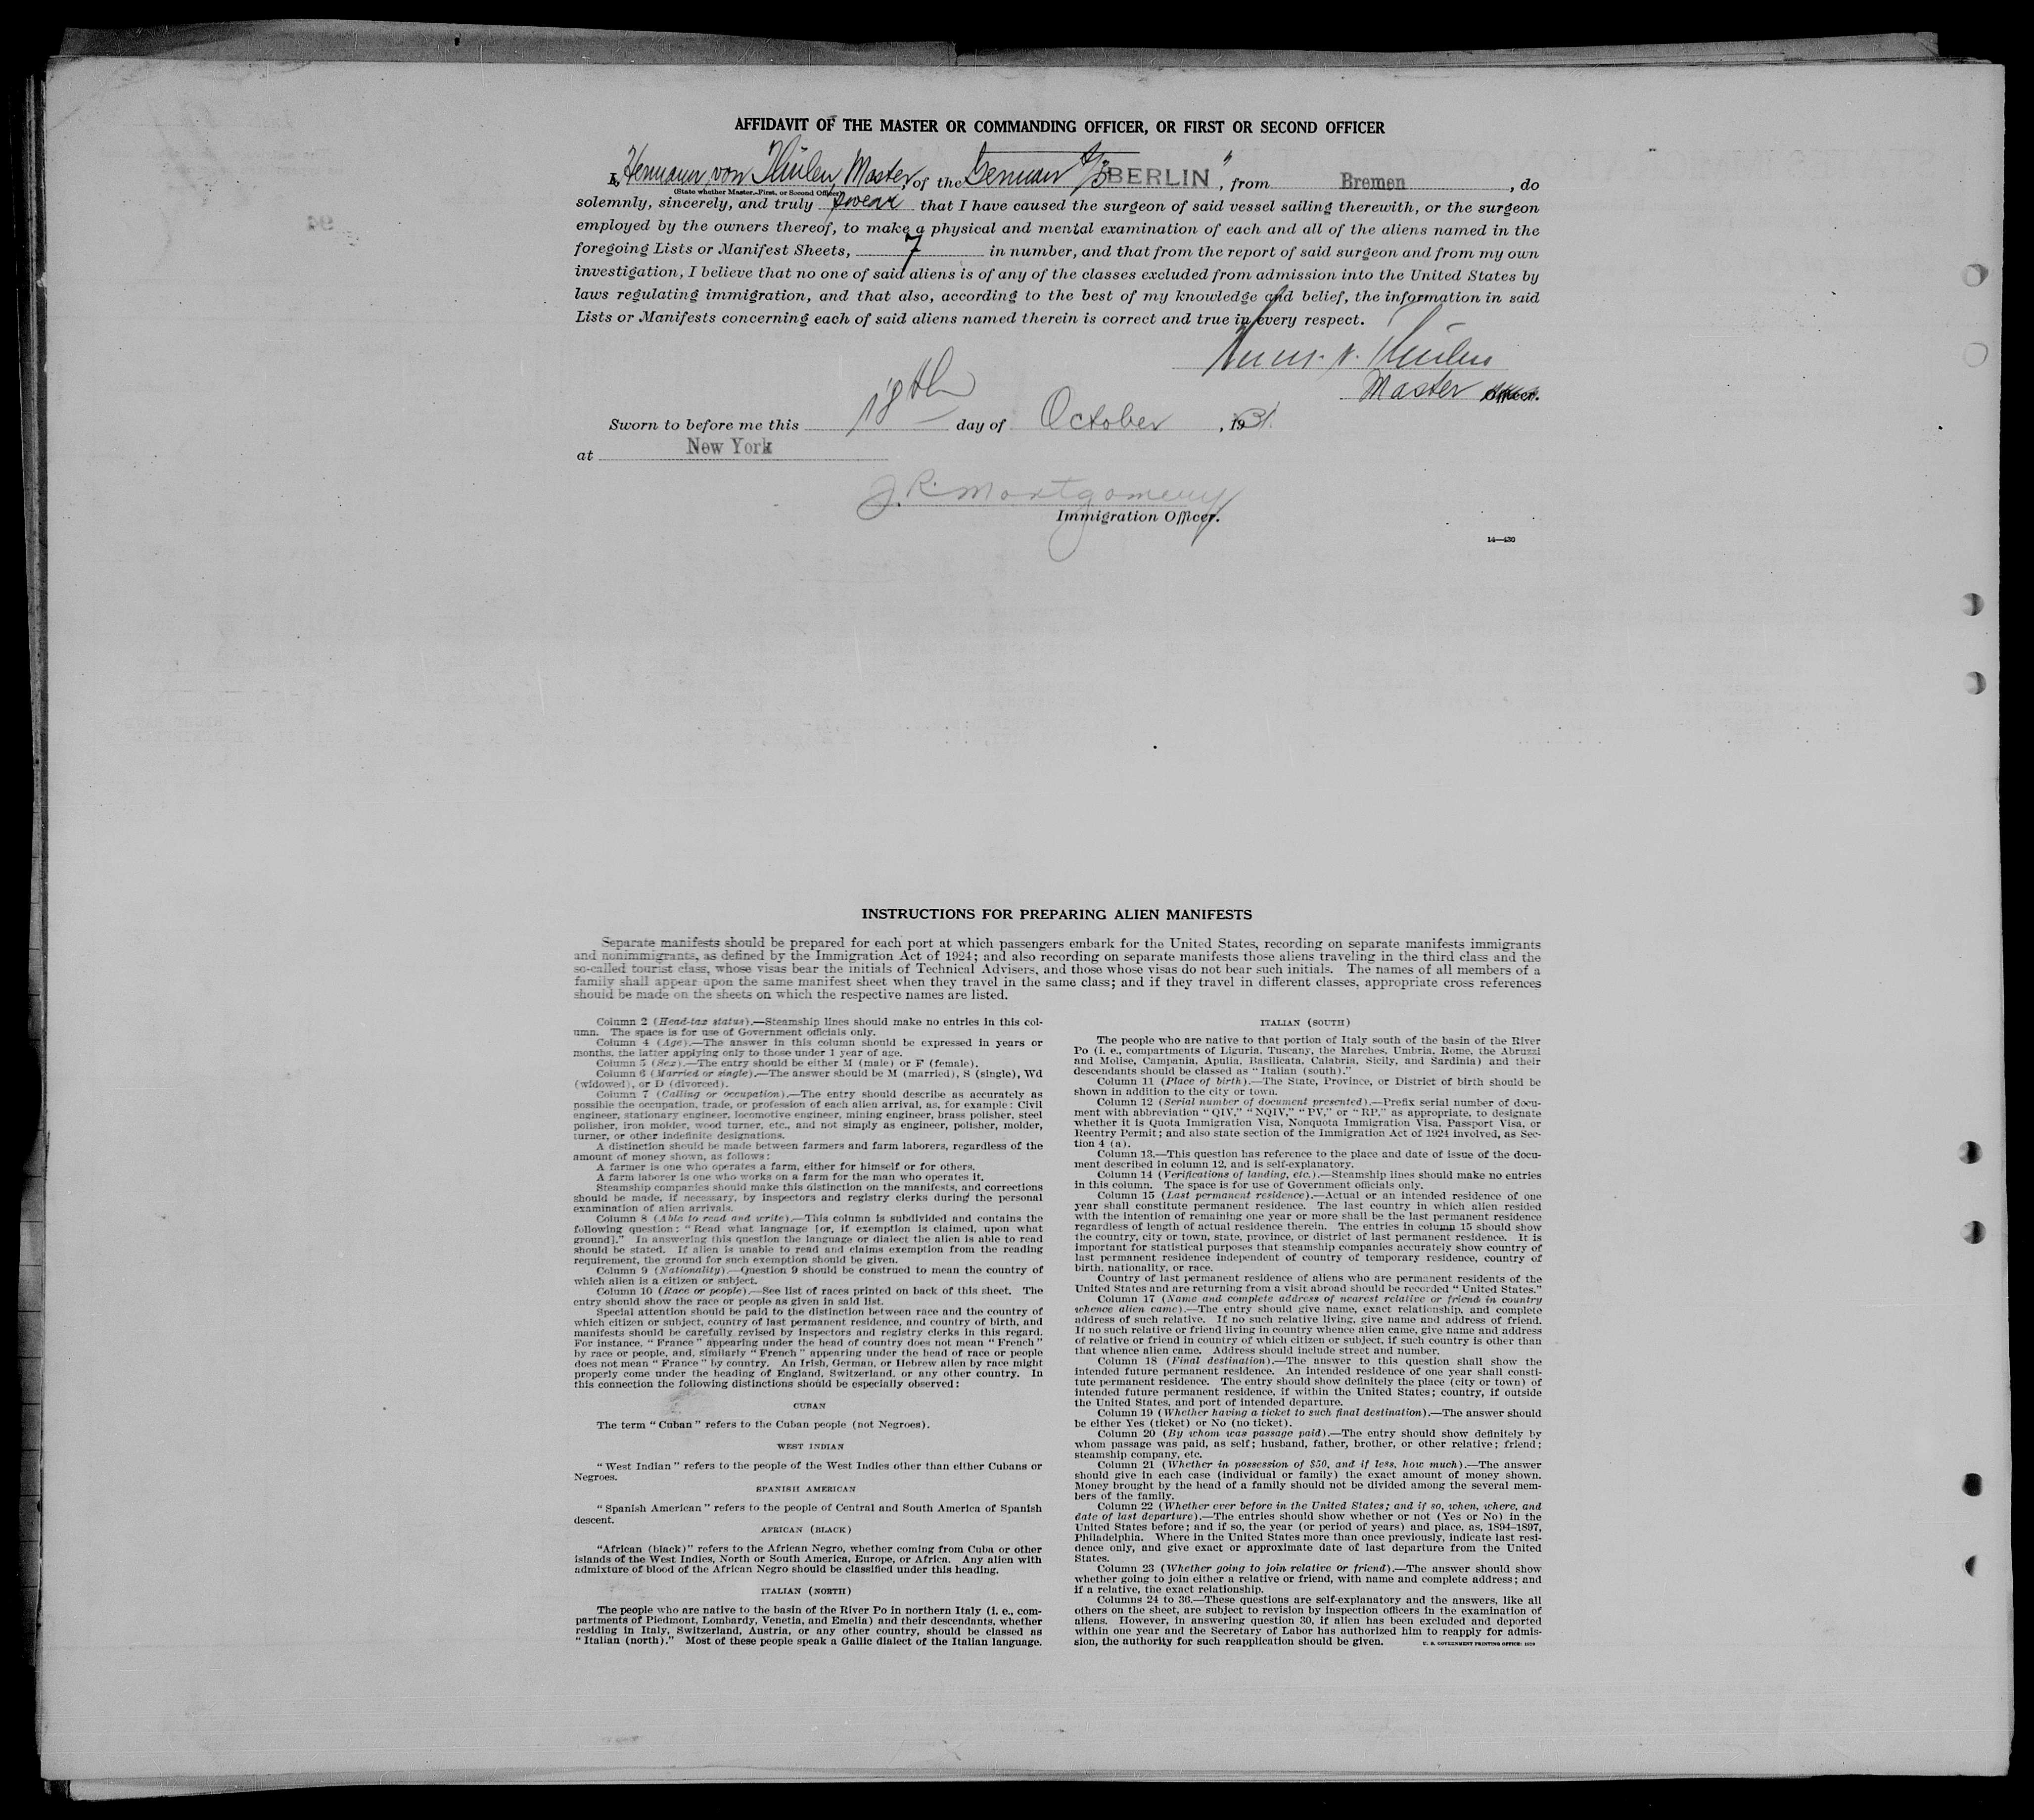 AFFIDAVIT OF THE MASTER OR COMMANDING OFFICER, OR FIRST OR SECOND OFFICER
I, Hermann von Thülen, Master, of the German S/S "BERLIN", from Bremen, do
(State whether Master, First, or Second Officer)
solemnly, sincerely, and truly swear that I have caused the surgeon of said vessel sailing therewith, or the surgeon
employed by the owners thereof, to make a physical and mental examination of each and all of the aliens named in the
foregoing Lists or Manifest Sheets, 7 in number, and that from the report of said surgeon and from my own
investigation, I believe that no one of said aliens is of any of the classes excluded from admission into the United States by
laws regulating immigration, and that also, according to the best of my knowledge and belief, the information in said
Lists or Manifests concerning each of said aliens named therein is correct and true in every respect.
Herm. v. Thülen
Master Officer.
Sworn to before me this 18th day of October, 1931.
at New York
J. R. Montgomery
Immigration Officer.
14—430
INSTRUCTIONS FOR PREPARING ALIEN MANIFESTS
Separate manifests should be prepared for each port at which passengers embark for the United States, recording on separate manifests immigrants
and nonimmigrants, as defined by the Immigration Act of 1924; and also recording on separate manifests those aliens traveling in the third class and the
so-called tourist class, whose visas bear the initials of Technical Advisers, and those whose visas do not bear such initials. The names of all members of a
family shall appear upon the same manifest sheet when they travel in the same class; and if they travel in different classes, appropriate cross references
should be made on the sheets on which the respective names are listed.
Column 2 (Head-tax status).—Steamship lines should make no entries in this col-
umn. The space is for use of Government officials only.
Column 4 (Age).—The answer in this column should be expressed in years or
months, the latter applying only to those under 1 year of age.
Column 5 (Sex).—The entry should be either M (male) or F (female).
Column 6 (Married or single).—The answer should be M (married), S (single), Wd
(widowed), or D (divorced).
Column 7 (Calling or occupation).—The entry should describe as accurately as
possible the occupation, trade, or profession of each alien arrival, as, for example: Civil
engineer, stationary engineer, locomotive engineer, mining engineer, brass polisher, steel
polisher, iron molder, wood turner, etc., and not simply as engineer, polisher, molder,
turner, or other indefinite designations.
A distinction should be made between farmers and farm laborers, regardless of the
amount of money shown, as follows:
A farmer is one who operates a farm, either for himself or for others.
A farm laborer is one who works on a farm for the man who operates it.
Steamship companies should make this distinction on the manifests, and corrections
should be made, if necessary, by inspectors and registry clerks during the personal
examination of alien arrivals.
Column 8 (Able to read and write).—This column is subdivided and contains the
following question: "Read what language [or, if exemption is claimed, upon what
ground]." In answering this question the language or dialect the alien is able to read
should be stated. If alien is unable to read and claims exemption from the reading
requirement, the ground for such exemption should be given.
Column 9 (Nationality).—Question 9 should be construed to mean the country of
which alien is a citizen or subject.
Column 10 (Race or people).—See list of races printed on back of this sheet. The
entry should show the race or people as given in said list.
Special attention should be paid to the distinction between race and the country of
which citizen or subject, country of last permanent residence, and country of birth, and
manifests should be carefully revised by inspectors and registry clerks in this regard.
For instance, "France" appearing under the head of country does not mean "French"
by race or people, and, similarly "French" appearing under the head of race or people
does not mean "France" by country. An Irish, German, or Hebrew alien by race might
properly come under the heading of England, Switzerland, or any other country. In
this connection the following distinctions should be especially observed:
CUBAN
The term "Cuban" refers to the Cuban people (not Negroes).
WEST INDIAN
"West Indian" refers to the people of the West Indies other than either Cubans or
Negroes.
SPANISH AMERICAN
"Spanish American" refers to the people of Central and South America of Spanish
descent.
AFRICAN (BLACK)
"African (black)" refers to the African Negro, whether coming from Cuba or other
islands of the West Indies, North or South America, Europe, or Africa. Any alien with
admixture of blood of the African Negro should be classified under this heading.
ITALIAN (NORTH)
The people who are native to the basin of the River Po in northern Italy (i. e., com-
partments of Piedmont, Lombardy, Venetia, and Emelia) and their descendants, whether
residing in Italy, Switzerland, Austria, or any other country, should be classed as
"Italian (north)." Most of these people speak a Gallic dialect of the Italian language.
ITALIAN (SOUTH)
The people who are native to that portion of Italy south of the basin of the River
Po (i. e., compartments of Liguria, Tuscany, the Marches, Umbria, Rome, the Abruzzi
and Molise, Campania, Apulia, Basilicata, Calabria, Sicily, and Sardinia) and their
descendants should be classed as "Italian (south)."
Column 11 (Place of birth).—The State, Province, or District of birth should be
shown in addition to the city or town.
Column 12 (Serial number of document presented).—Prefix serial number of docu-
ment with abbreviation "QIV," "NQIV," "PV," or "RP," as appropriate, to designate
whether it is Quota Immigration Visa, Nonquota Immigration Visa, Passport Visa, or
Reentry Permit; and also state section of the Immigration Act of 1924 involved, as Sec-
tion 4 (a).
Column 13.—This question has reference to the place and date of issue of the docu-
ment described in column 12, and is self-explanatory.
Column 14 (Verifications of landing, etc.).—Steamship lines should make no entries
in this column. The space is for use of Government officials only.
Column 15 (Last permanent residence).—Actual or an intended residence of one
year shall constitute permanent residence. The last country in which alien resided
with the intention of remaining one year or more shall be the last permanent residence
regardless of length of actual residence therein. The entries in column 15 should show
the country, city or town, state, province, or district of last permanent residence. It is
important for statistical purposes that steamship companies accurately show country of
last permanent residence independent of country of temporary residence, country of
birth, nationality, or race.
Country of last permanent residence of aliens who are permanent residents of the
United States and are returning from a visit abroad should be recorded "United States."
Column 17 (Name and complete address of nearest relative or friend in country
whence alien came).—The entry should give name, exact relationship, and complete
address of such relative. If no such relative living, give name and address of friend.
If no such relative or friend living in country whence alien came, give name and address
of relative or friend in country of which citizen or subject, if such country is other than
that whence alien came. Address should include street and number.
Column 18 (Final destination).—The answer to this question shall show the
intended future permanent residence. An intended residence of one year shall consti-
tute permanent residence. The entry should show definitely the place (city or town) of
intended future permanent residence, if within the United States; country, if outside
the United States, and port of intended departure.
Column 19 (Whether having a ticket to such final destination).—The answer should
be either Yes (ticket) or No (no ticket).
Column 20 (By whom was passage paid).—The entry should show definitely by
whom passage was paid, as self; husband, father, brother, or other relative; friend;
steamship company, etc.
Column 21 (Whether in possession of $50, and if less, how much).—The answer
should give in each case (individual or family) the exact amount of money shown.
Money brought by the head of a family should not be divided among the several mem-
bers of the family.
Column 22 (Whether ever before in the United States; and if so, when, where, and
date of last departure).—The entries should show whether or not (Yes or No) in the
United States before; and if so, the year (or period of years) and place, as, 1894–1897,
Philadelphia. Where in the United States more than once previously, indicate last resi-
dence only, and give exact or approximate date of last departure from the United
States.
Column 23 (Whether going to join relative or friend).—The answer should show
whether going to join either a relative or friend, with name and complete address; and
if a relative, the exact relationship.
Columns 24 to 36.—These questions are self-explanatory and the answers, like all
others on the sheet, are subject to revision by inspection officers in the examination of
aliens. However, in answering question 30, if alien has been excluded and deported
within one year and the Secretary of Labor has authorized him to reapply for admis-
sion, the authority for such reapplication should be given.
U. S. GOVERNMENT PRINTING OFFICE: 1929